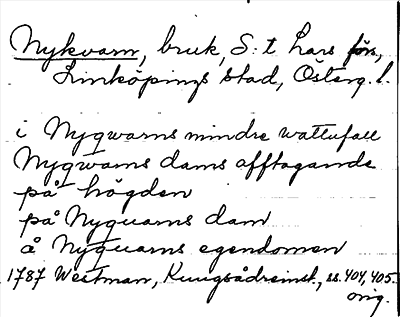 Nykvarn, bruk, S:t Lars förs,
Linköpings stad, Österg. l.
i Nyqwarns mindre wattufall
Nyqwarns dams afftagande
på högden
på Nyquarns dam
å Nyquarns egendomen
1787 Westman, Kungsådreinst., ss. 404, 405.
orig.